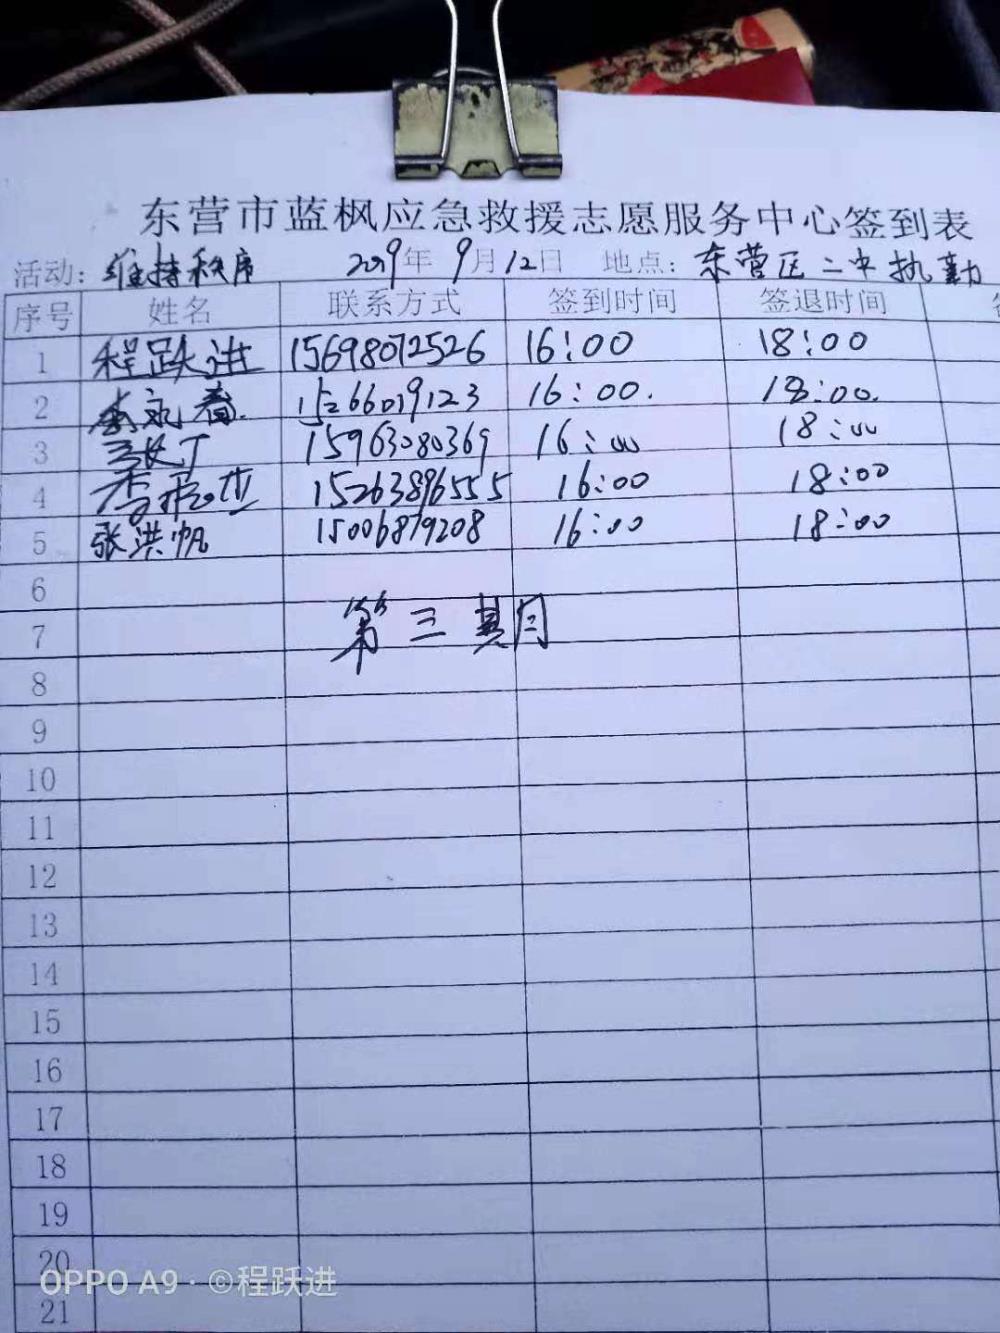 东营市蓝枫应急救援志愿服务中心签到表
活动: 维持秩序 2019年 9月12日 地点: 东营区二中执勤
序号 姓名 联系方式 签到时间 签退时间
1 程跃进 15698072526 16:00 18:00
2 李永春 15266019123 16:00. 18:00.
3 15963080369 16:00 18:00
4 15263896555 16:00 18:00
5 张洪帆 15006879208 16:00 18:00
6
7 第三期
8
9
10
11
12
13
14
15
16
17
18
19
20
OPPO A9 · ©程跃进
21